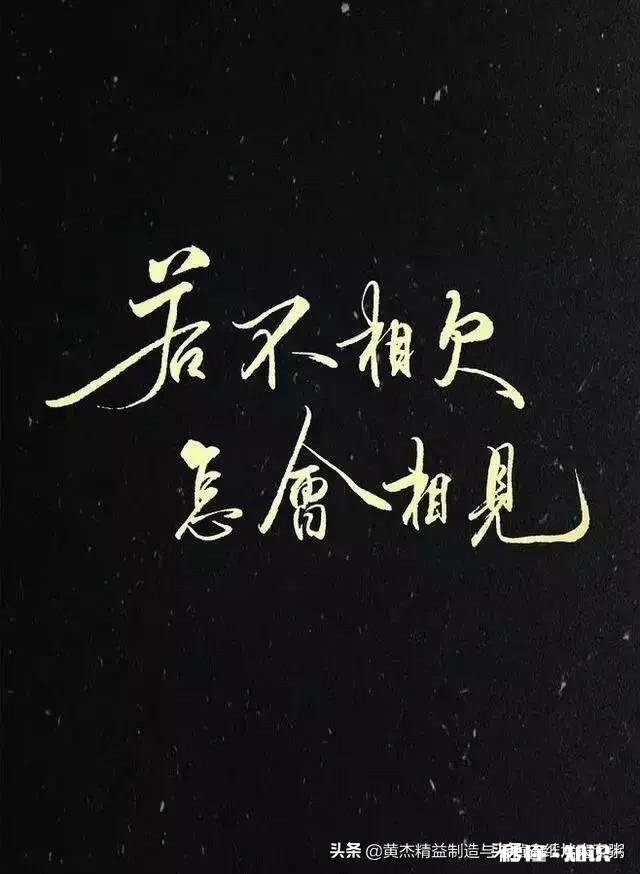 若不相欠
怎會相見
头条 @黄杰精益制造与